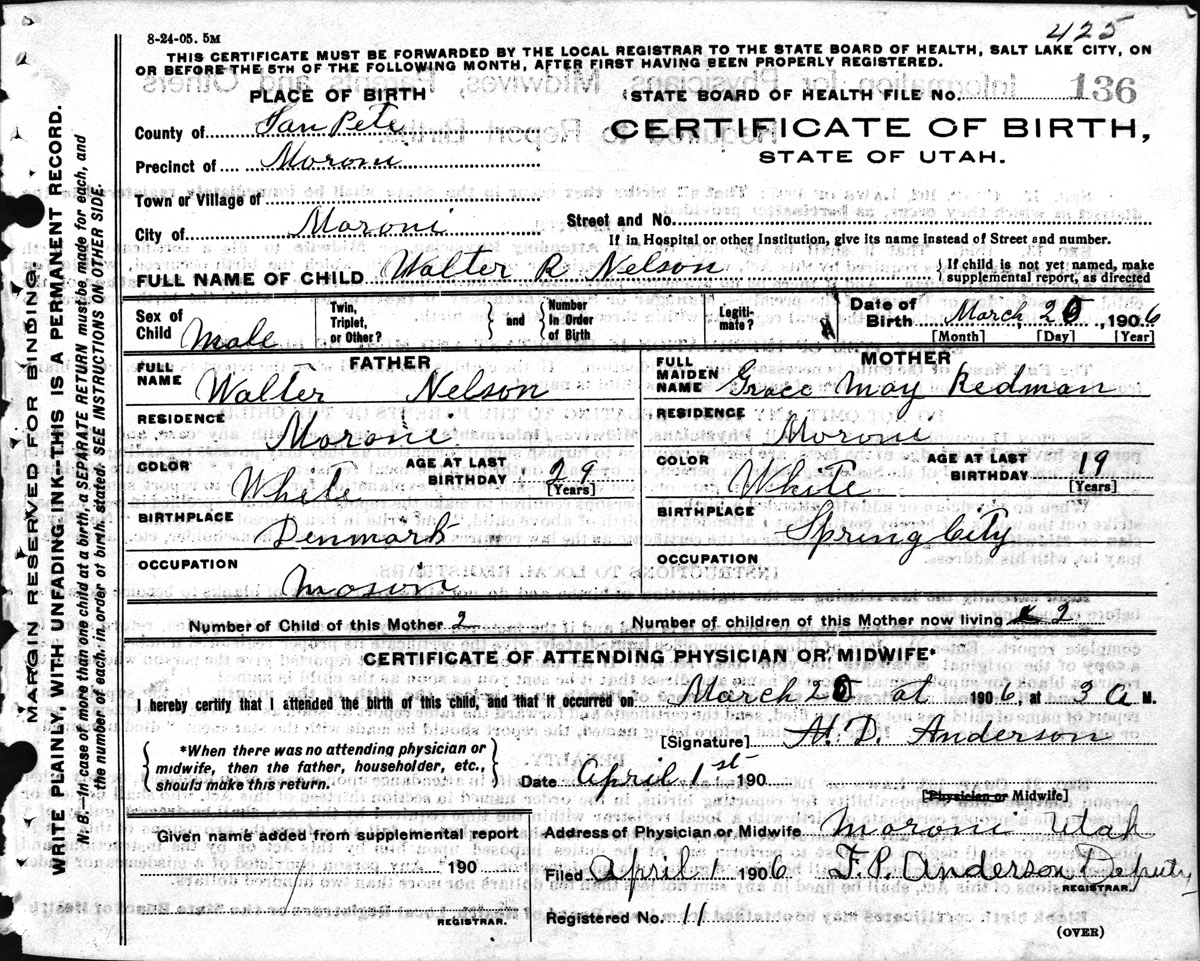 425
8-24-05. 5M
THIS CERTIFICATE MUST BE FORWARDED BY THE LOCAL REGISTRAR TO THE STATE BOARD OF HEALTH, SALT LAKE CITY, ON
OR BEFORE THE 5TH OF THE FOLLOWING MONTH, AFTER FIRST HAVING BEEN PROPERLY REGISTERED.
PLACE OF BIRTH
STATE BOARD OF HEALTH FILE No. 136
County of San Pete
CERTIFICATE OF BIRTH,
Precinct of Moroni
STATE OF UTAH.
Town or Village of
City of Moroni Street and No.
If in Hospital or other Institution, give its name instead of Street and number.
FULL NAME OF CHILD Walter R Nelson { If child is not yet named, make supplemental report, as directed
Sex of Child Male Twin, Triplet, or Other? } and { Number In Order of Birth Legiti-mate? Date of Birth March 25, 1906
[Month] [Day] [Year]
FATHER
FULL NAME Walter Nelson
RESIDENCE Moroni
COLOR White AGE AT LAST BIRTHDAY 29
[Years]
BIRTHPLACE Denmark
OCCUPATION Mason
MOTHER
FULL MAIDEN NAME Grace May Redman
RESIDENCE Moroni
COLOR White AGE AT LAST BIRTHDAY 19
[Years]
BIRTHPLACE Spring City
OCCUPATION
Number of Child of this Mother 2 Number of children of this Mother now living 2
CERTIFICATE OF ATTENDING PHYSICIAN OR MIDWIFE*
I hereby certify that I attended the birth of this child, and that it occurred on March 25 at 1906, at 3 a M.
*When there was no attending physician or
midwife, then the father, householder, etc.,
should make this return.
[Signature] M. D. Anderson
Date April 1st 190
[Physician or Midwife]
Given name added from supplemental report
190
REGISTRAR.
Address of Physician or Midwife Moroni Utah
Filed April 1 1906 F. P. Anderson Deputy
REGISTRAR.
Registered No. 11
(OVER)
MARGIN RESERVED FOR BINDING.
WRITE PLAINLY, WITH UNFADING INK—THIS IS A PERMANENT RECORD.
N. B.—In case of more than one child at a birth, a SEPARATE RETURN must be made for each, and
the number of each, in order of birth, stated. SEE INSTRUCTIONS ON OTHER SIDE.